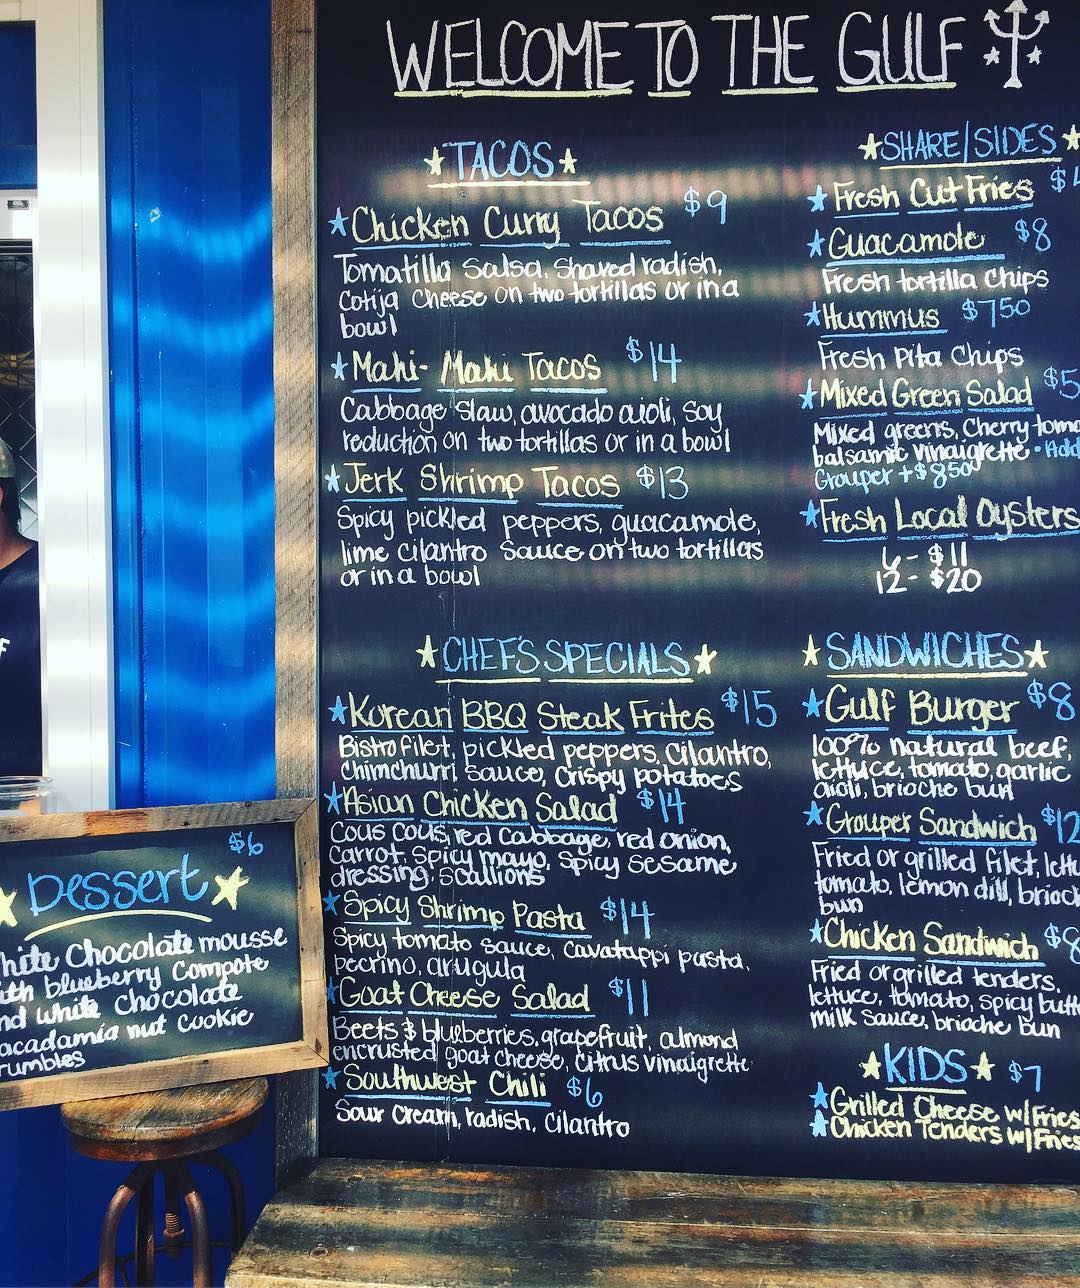 WELCOME TO THE GULF
TACOS
Chicken Curry Tacos $9
Tomatillo Salsa, shaved radish,
Cotija Cheese on two tortillas or in a
bowl
Mahi-Mahi Tacos $14
Cabbage slaw, avocado aioli, soy
reduction on two tortillas or in a bowl
Jerk Shrimp Tacos $13
Spicy pickled peppers, guacamole,
lime cilantro sauce on two tortillas
or in a bowl
CHEF'S SPECIALS
Korean BBQ Steak Frites $15
Bistro filet, pickled peppers, cilantro,
chimchurri sauce, crispy potatoes
Asian Chicken Salad $14
Cous cous, red cabbage, red onion,
carrot, spicy mayo, spicy sesame
dressing, scallions
Spicy Shrimp Pasta $14
Spicy tomato sauce, cavatappi pasta,
pecrino, arugula
Goat Cheese Salad $11
Beets & blueberries, grapefruit, almond
encrusted goat cheese, citrus vinaigrette
Southwest Chili $6
Sour cream, radish, cilantro
SHARE/SIDES
Fresh Cut Fries $4
Guacamole $8
Fresh tortilla chips
Hummus $7 50
Fresh Pita Chips
Mixed Green Salad $5
Mixed greens, cherry toma
balsamic vinaigrette • Add
Grouper +$8 50
Fresh Local Oysters
6 - $11
12 - $20
SANDWICHES
Gulf Burger $8
100% natural beef,
lettuce, tomato, garlic
aioli, brioche bun
Grouper Sandwich $12
Fried or grilled filet, lettu
tomato, lemon dill, brioch
bun
Chicken Sandwich $8
Fried or grilled tenders,
lettuce, tomato, spicy butt
milk sauce, brioche bun
KIDS $7
Grilled Cheese w/Fries
Chicken Tenders w/Fries
$6
Dessert
hite Chocolate mousse
ith blueberry Compote
nd white chocolate
acadamia nut cookie
rumbles